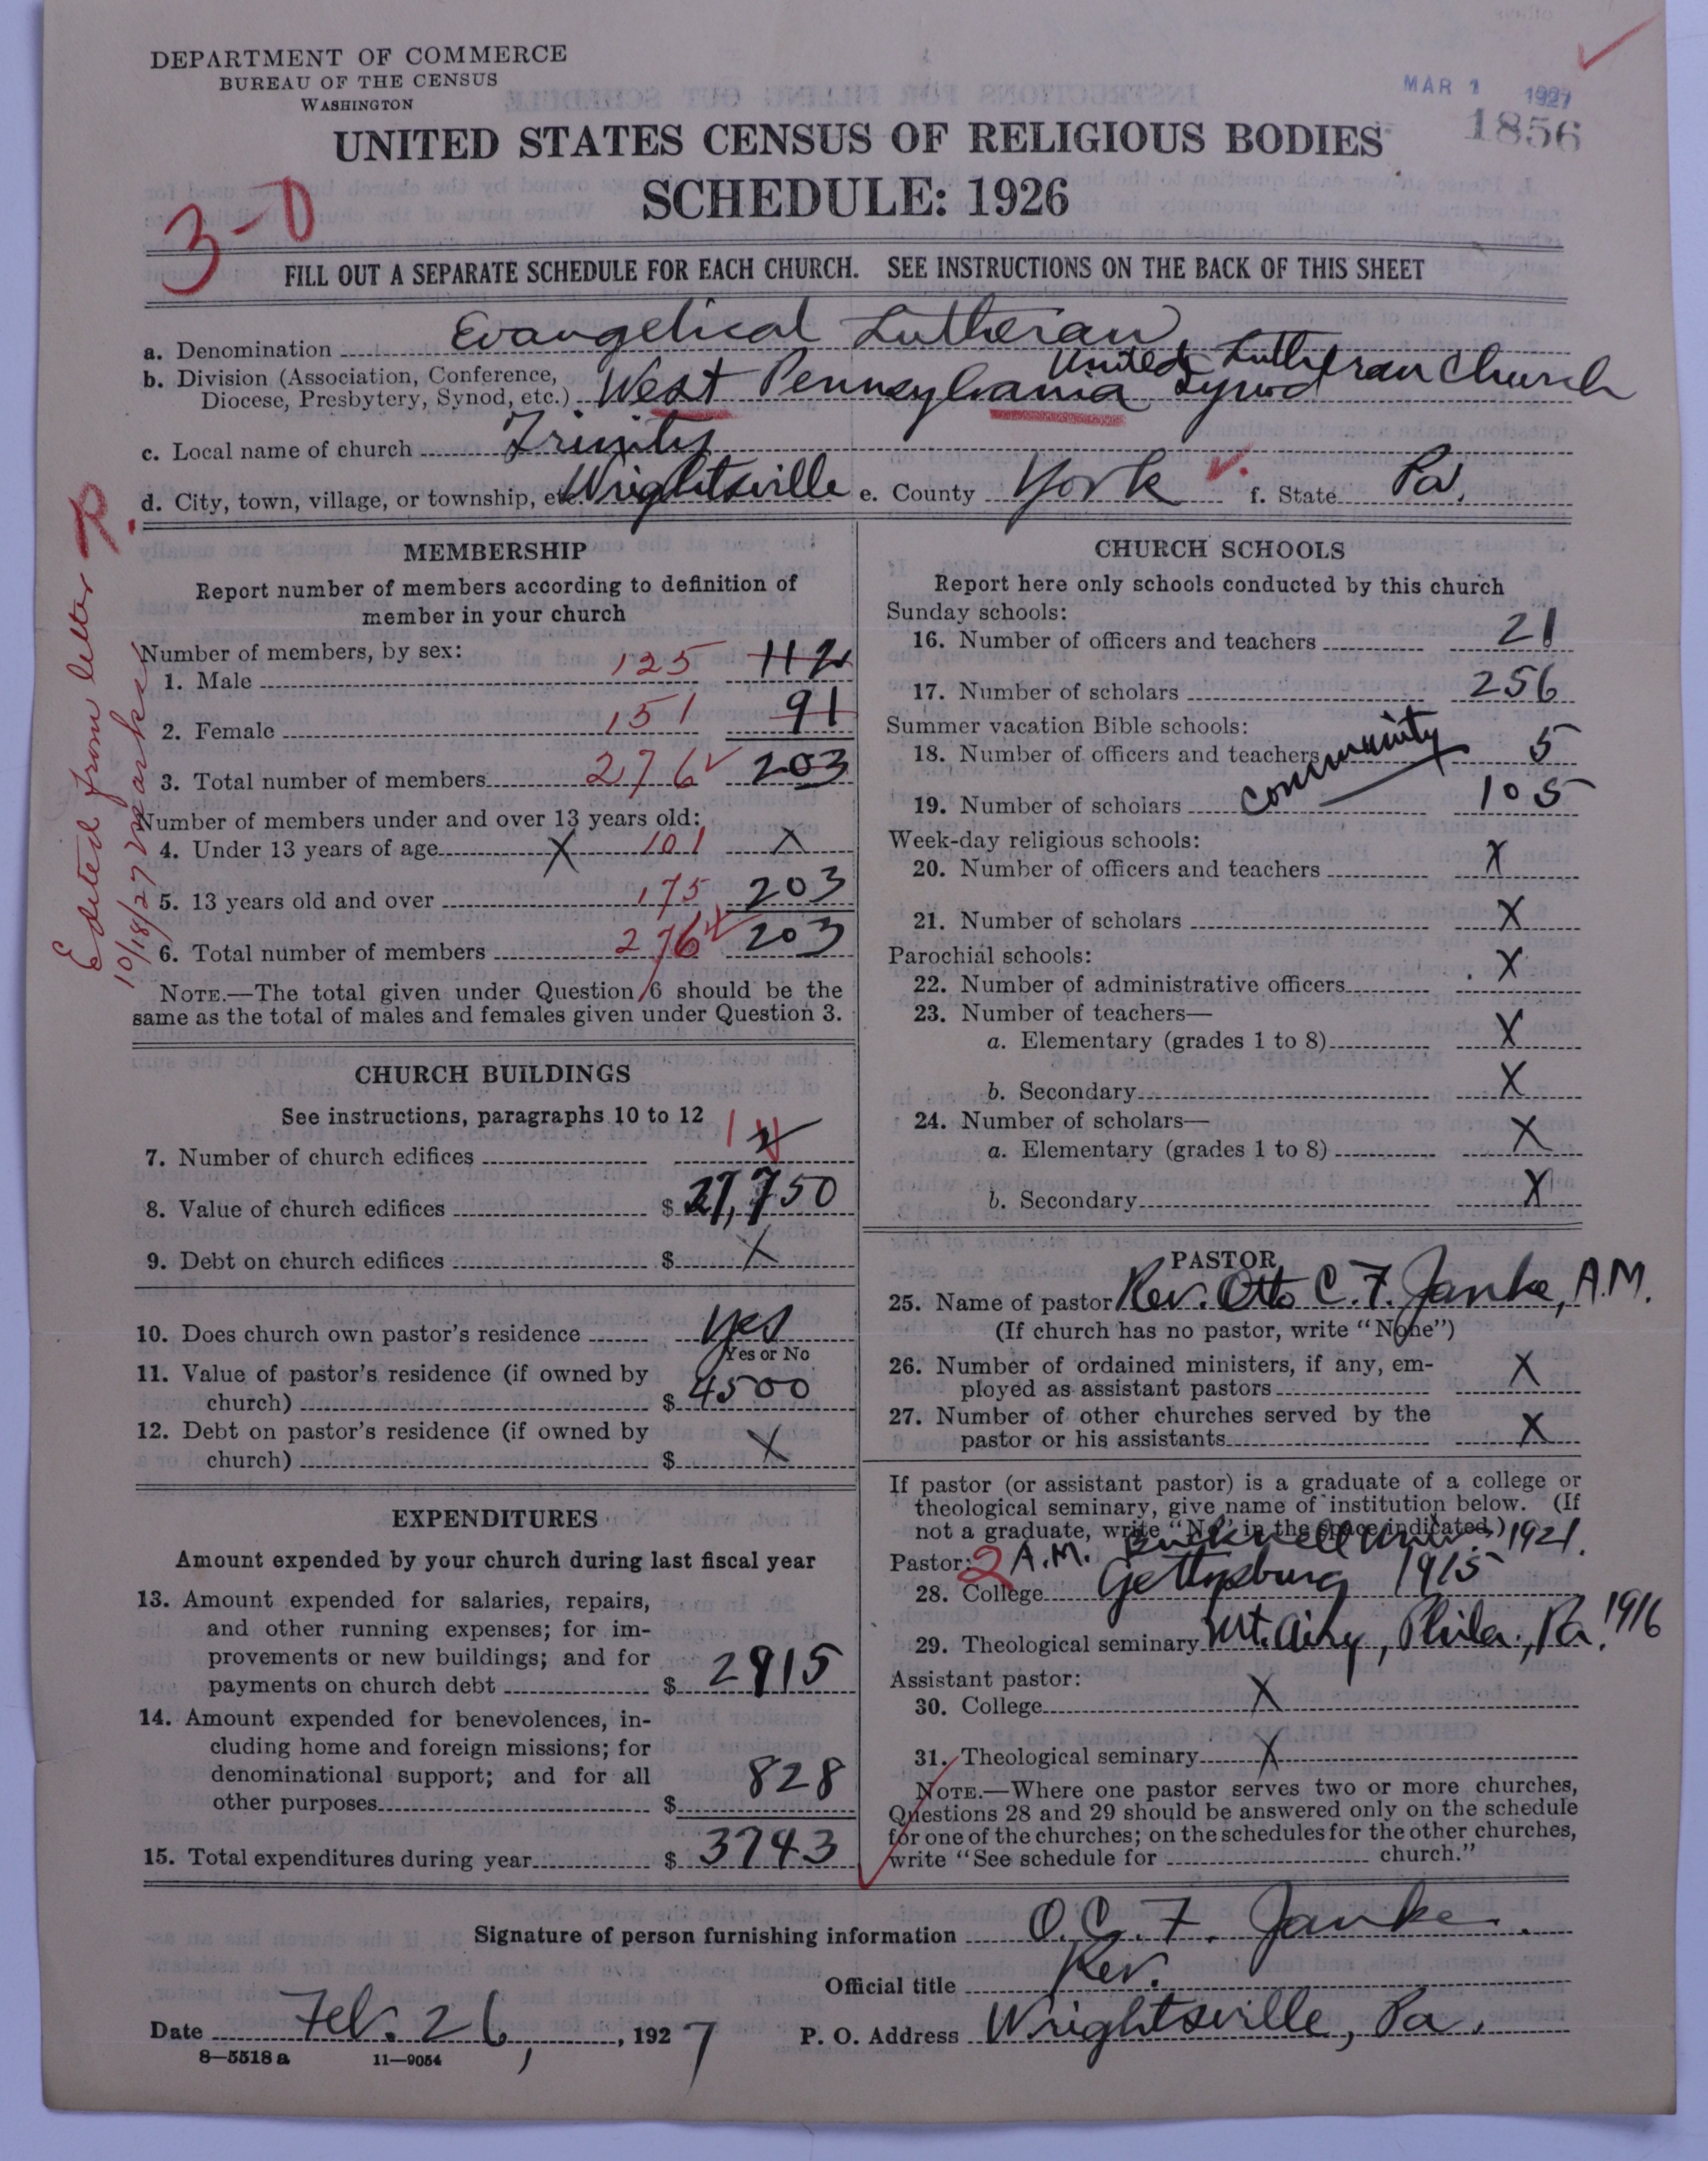 DEPARTMENT OF COMMERCE
BUREAU OF THE CENSUS
WASHINGTON
MAR 1 1927
1856
UNITED STATES CENSUS OF RELIGIOUS BODIES
SCHEDULE: 1926
3-0
FILL OUT A SEPARATE SCHEDULE FOR EACH CHURCH. SEE INSTRUCTIONS ON THE BACK OF THIS SHEET
a. Denomination Evangelical Lutheran,
United Lutheran Church
b. Division (Association, Conference,
Diocese, Presbytery, Synod, etc.) West Pennsylvania Synod
c. Local name of church Trinity
d. City, town, village, or township, etc. Wrightsville e. County York f. State Pa.
Edited from letter
10/18/27
MEMBERSHIP
Report number of members according to definition of
member in your church
Number of members, by sex:
1. Male 125 112
2. Female 151 91
3. Total number of members 276 203
Number of members under and over 13 years old:
4. Under 13 years of age X 101 X
5. 13 years old and over 175 203
6. Total number of members 276 203
NOTE.—The total given under Question 6 should be the
same as the total of males and females given under Question 3.
CHURCH BUILDINGS
See instructions, paragraphs 10 to 12
7. Number of church edifices 1
8. Value of church edifices $ 27,750
9. Debt on church edifices $ X
10. Does church own pastor's residence Yes
Yes or No
11. Value of pastor's residence (if owned by
church) $ 4500
12. Debt on pastor's residence (if owned by
church) $ X
EXPENDITURES
Amount expended by your church during last fiscal year
13. Amount expended for salaries, repairs,
and other running expenses; for im-
provements or new buildings; and for
payments on church debt $ 2915
14. Amount expended for benevolences, in-
cluding home and foreign missions; for
denominational support; and for all
other purposes $ 828
15. Total expenditures during year $ 3743
CHURCH SCHOOLS
Report here only schools conducted by this church
Sunday schools:
16. Number of officers and teachers 21
17. Number of scholars 256
Summer vacation Bible schools:
18. Number of officers and teachers 5
Community
19. Number of scholars 105
Week-day religious schools:
20. Number of officers and teachers X
21. Number of scholars X
Parochial schools:
22. Number of administrative officers X
23. Number of teachers—
a. Elementary (grades 1 to 8) X
b. Secondary X
24. Number of scholars—
a. Elementary (grades 1 to 8) X
b. Secondary X
PASTOR
25. Name of pastor Rev. Otto C. F. Janke, A.M.
(If church has no pastor, write "None")
26. Number of ordained ministers, if any, em-
ployed as assistant pastors X
27. Number of other churches served by the
pastor or his assistants X
If pastor (or assistant pastor) is a graduate of a college or
theological seminary, give name of institution below. (If
not a graduate, write "No" in the space indicated.)
Pastor: 2 A.M. Bucknell Univ. 1921.
28. College Gettysburg 1915
29. Theological seminary Mt. Airy, Phila., Pa. 1916
Assistant pastor:
30. College X
31. Theological seminary X
NOTE.—Where one pastor serves two or more churches,
Questions 28 and 29 should be answered only on the schedule
for one of the churches; on the schedules for the other churches,
write "See schedule for church."
Signature of person furnishing information O. C. F. Janke.
Official title Rev.
Date Feb. 26, , 1927 P. O. Address Wrightsville, Pa.
8—5518 a 11—9054